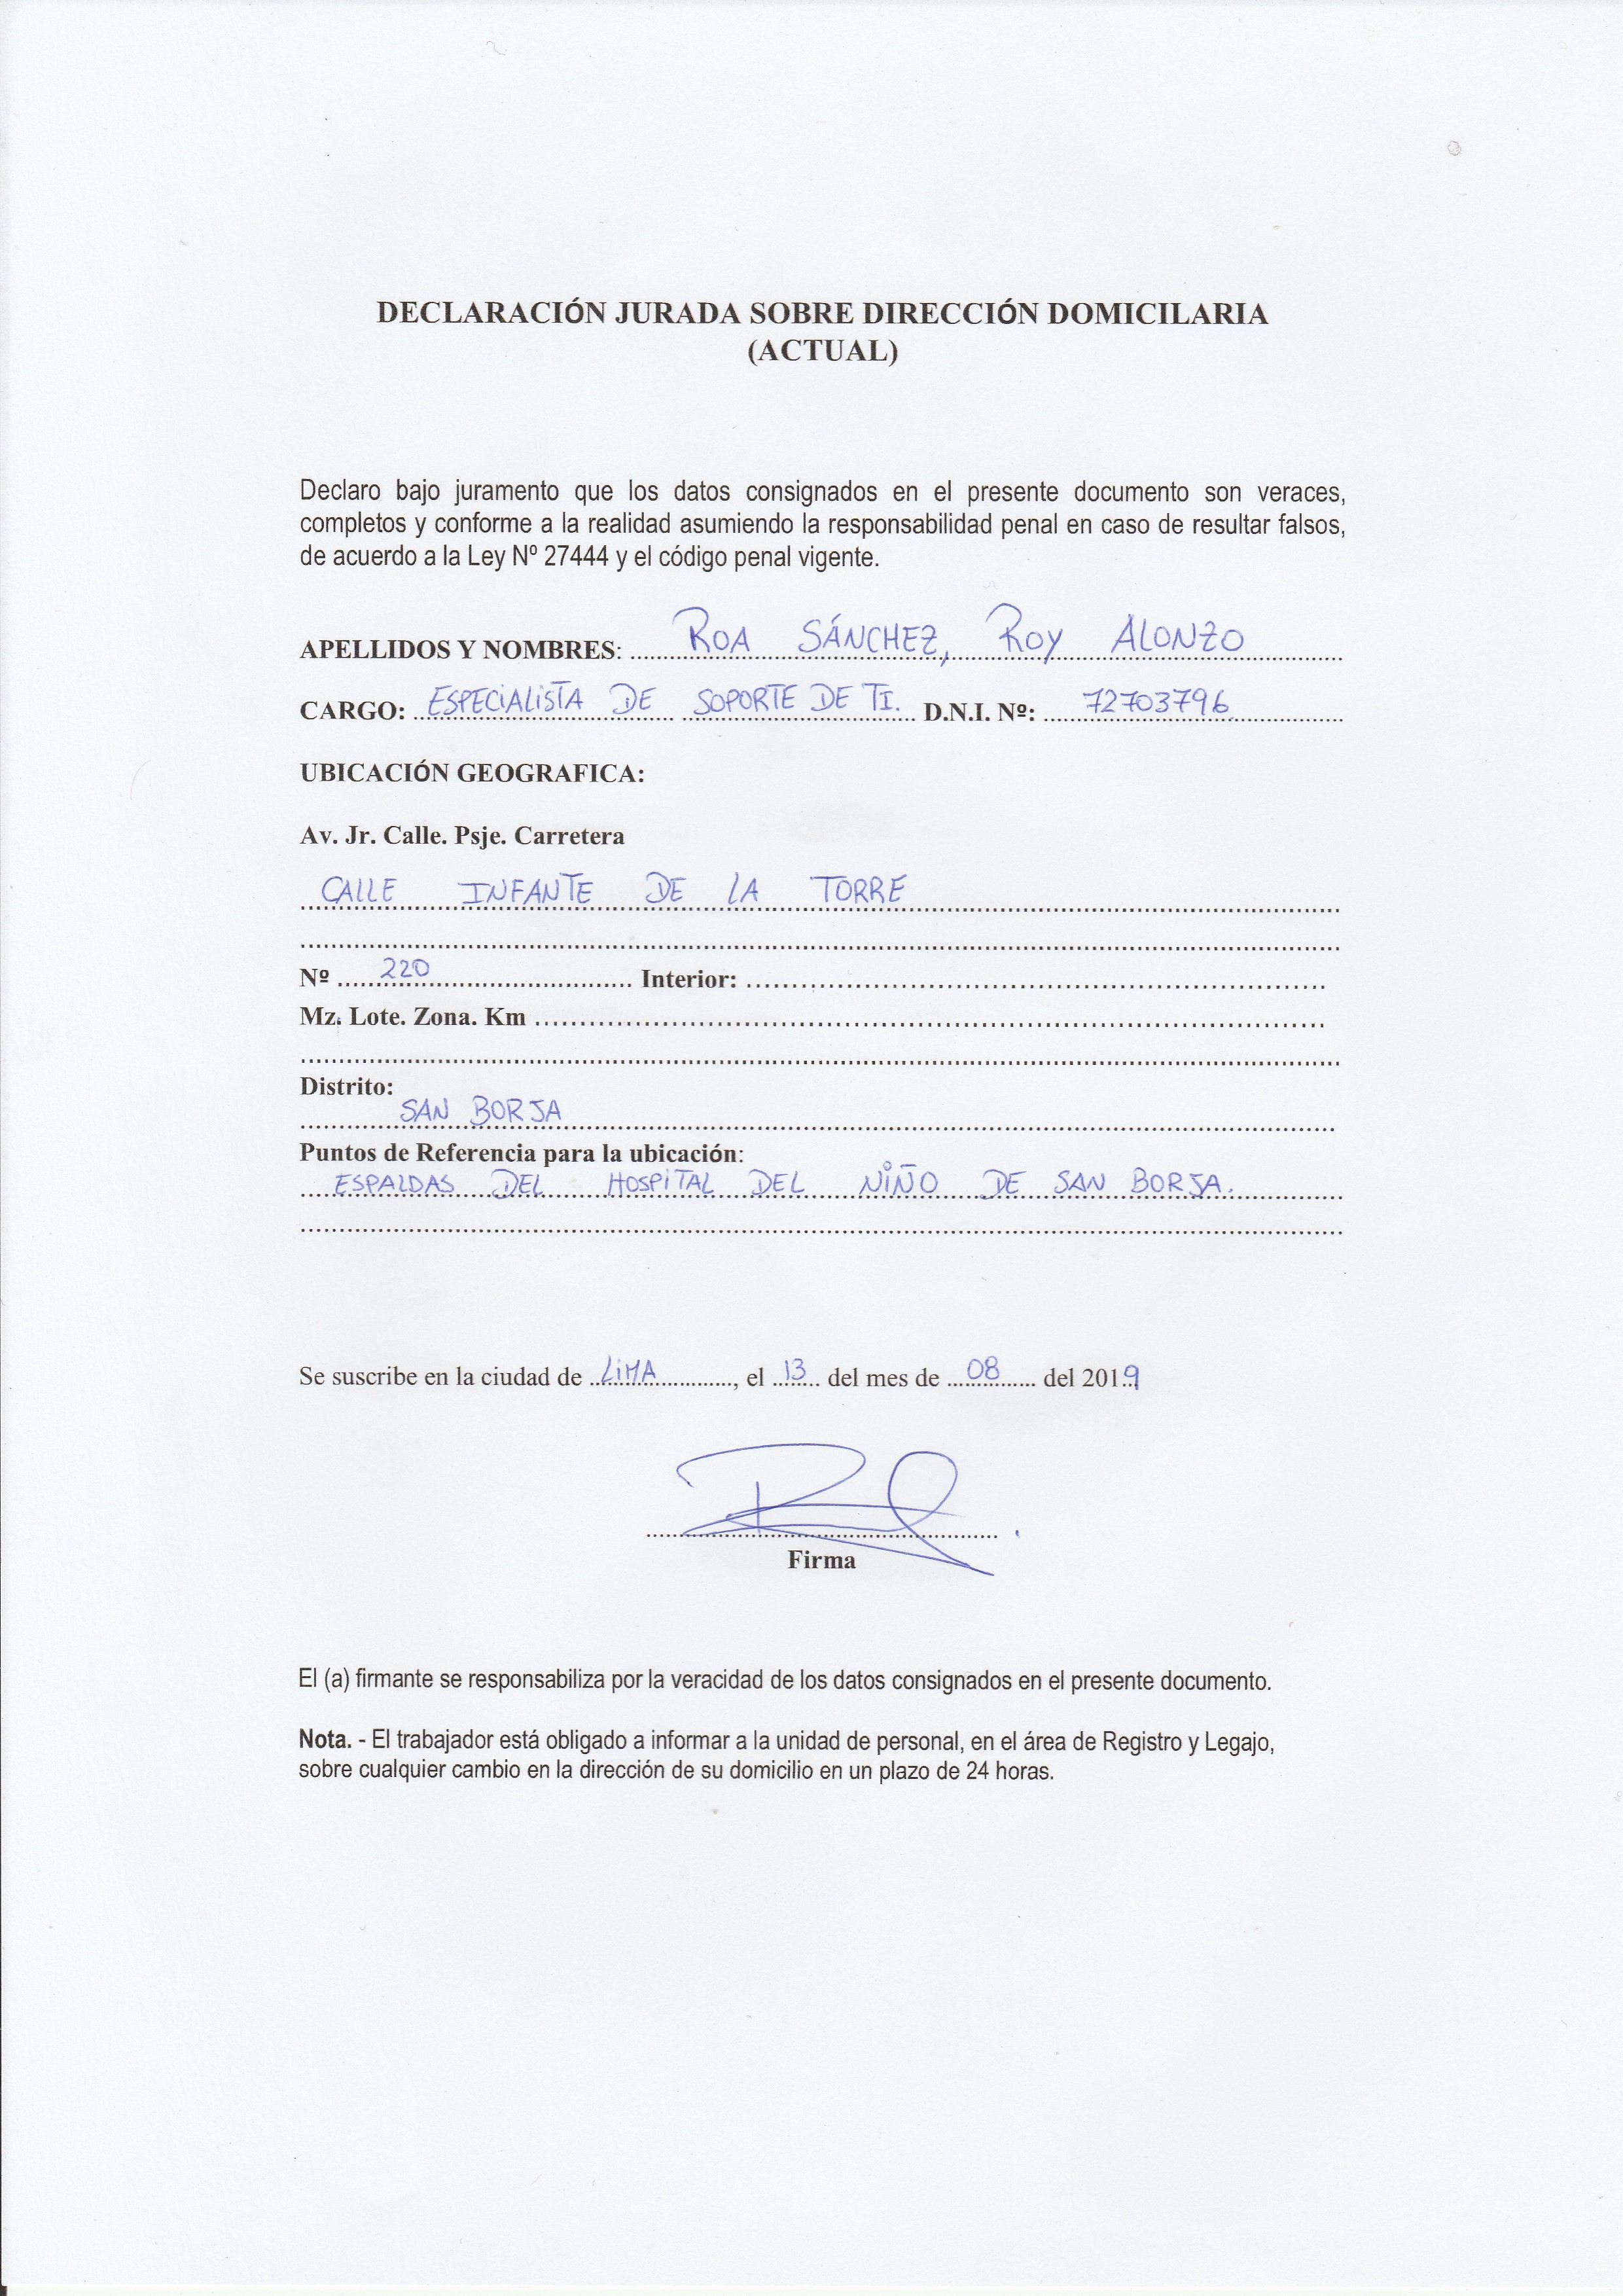 DECLARACIÓN JURADA SOBRE DIRECCIÓN DOMICILARIA
(ACTUAL)
Declaro bajo juramento que los datos consignados en el presente documento son veraces,
completos y conforme a la realidad asumiendo la responsabilidad penal en caso de resultar falsos,
de acuerdo a la Ley Nº 27444 y el código penal vigente.
APELLIDOS Y NOMBRES: ROA SÁNCHEZ, ROY ALONZO
CARGO: ESPECIALISTA DE SOPORTE DE TI. D.N.I. Nº: 72703796
UBICACIÓN GEOGRAFICA:
Av. Jr. Calle. Psje. Carretera
CALLE INFANTE DE LA TORRE
Nº 220 Interior:
Mz. Lote. Zona. Km
Distrito:
SAN BORJA
Puntos de Referencia para la ubicación:
ESPALDAS DEL HOSPITAL DEL NIÑO DE SAN BORJA.
Se suscribe en la ciudad de LIMA, el 13 del mes de 08 del 2019
Firma
El (a) firmante se responsabiliza por la veracidad de los datos consignados en el presente documento.
Nota. - El trabajador está obligado a informar a la unidad de personal, en el área de Registro y Legajo,
sobre cualquier cambio en la dirección de su domicilio en un plazo de 24 horas.